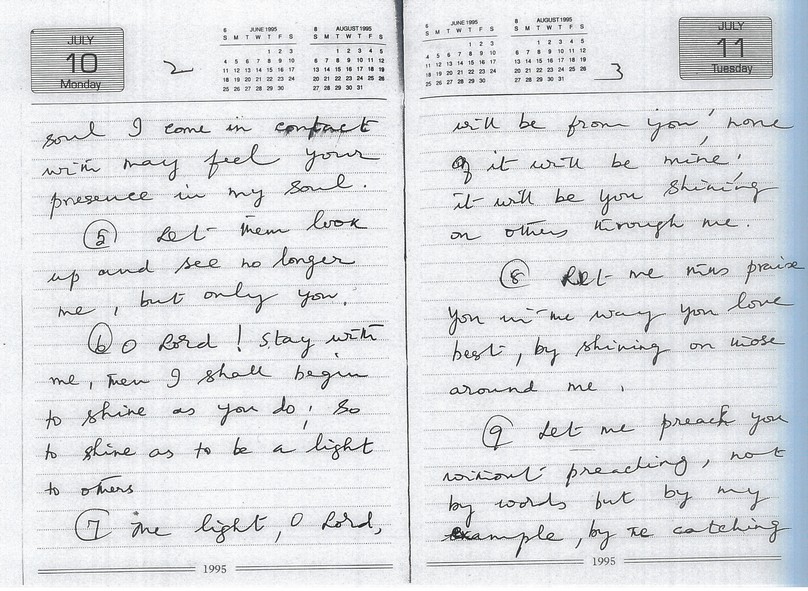 JULY
10
Monday
2
6 JUNE 1995
S M T W T F S
1 2 3
4 5 6 7 8 9 10
11 12 13 14 15 16 17
18 19 20 21 22 23 24
25 26 27 28 29 30
8 AUGUST 1995
S M T W T F S
1 2 3 4 5
6 7 8 9 10 11 12
13 14 15 16 17 18 19
20 21 22 23 24 25 26
27 28 29 30 31
soul I come in contact
with may feel your
presence in my soul.
5 Let them look
up and see no longer
me, but only you.
6 O Lord! Stay with
me, then I shall begin
to shine as you do; so
to shine as to be a light
to others
7 The light, O Lord,
1995
6 JUNE 1995
S M T W T F S
1 2 3
4 5 6 7 8 9 10
11 12 13 14 15 16 17
18 19 20 21 22 23 24
25 26 27 28 29 30
8 AUGUST 1995
S M T W T F S
1 2 3 4 5
6 7 8 9 10 11 12
13 14 15 16 17 18 19
20 21 22 23 24 25 26
27 28 29 30 31
3
JULY
11
Tuesday
will be from you, none
of it will be mine.
it will be you shining
on others through me.
8 Let me thus praise
you in the way you love
best, by shining on those
around me.
9 Let me preach you
without preaching, not
by words but by my
example, by the catching
1995